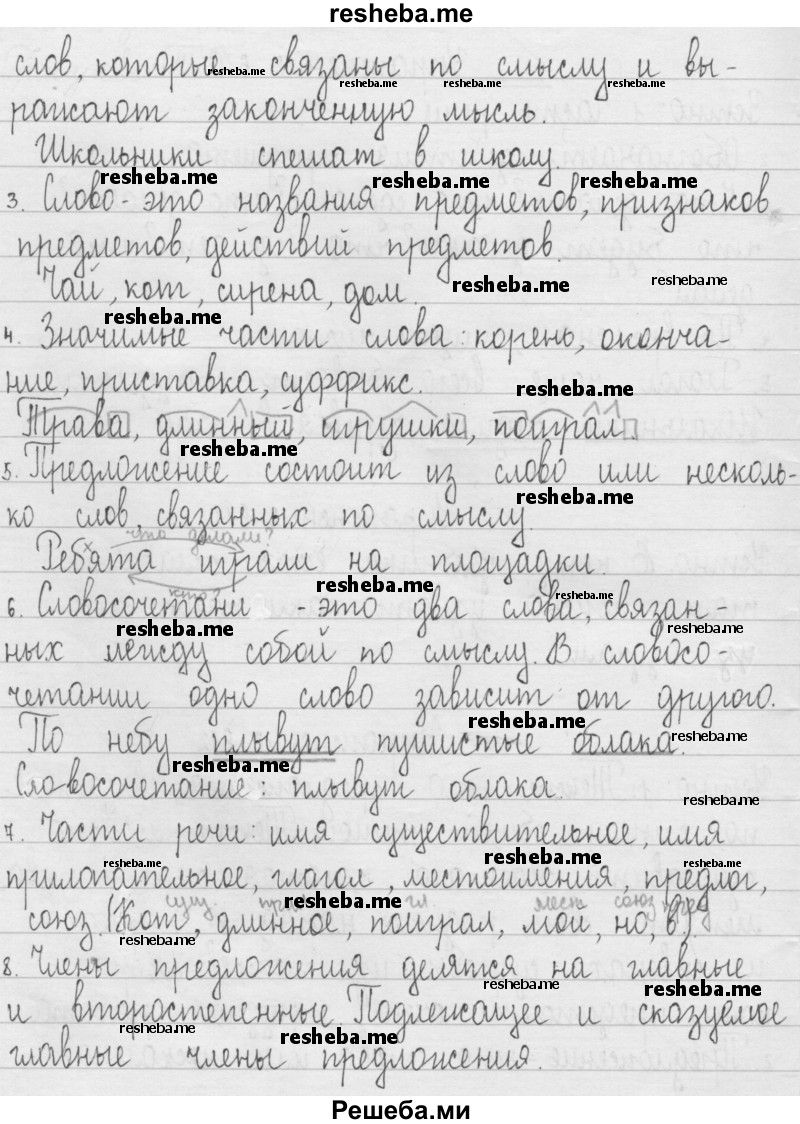 resheba.me
слов, которые связаны по смыслу и вы-
ражают законченную мысль.
Школьники спешат в школу.
3. Слово - это названия предметов, признаков
предметов, действий предметов.
Чай, кот, сирена, дом.
4. Значимые части слова: корень, оконча-
ние, приставка, суффикс.
Трава, длинный, игрушки, поиграл
5. Предложение состоит из слово или несколь-
ко слов, связанных по смыслу.
что делали?
Ребята играли на площадки.
кто?
6. Словосочетани - это два слова, связан-
ных между собой по смыслу. В словосо-
четании одно слово зависит от другого.
По небу плывут пушистые облака.
Словосочетание: плывут облака.
7. Части речи: имя существительное, имя
прилагательное, глагол, местоимения, предлог,
сущ. прил. гл. мест союз пред
союз. (Кот, длинное, поиграл, мой, но, в).
8. Члены предложения делятся на главные
и второстепенные. Подлежащее и сказуемое
главные члены предложения.
Решеба.ми